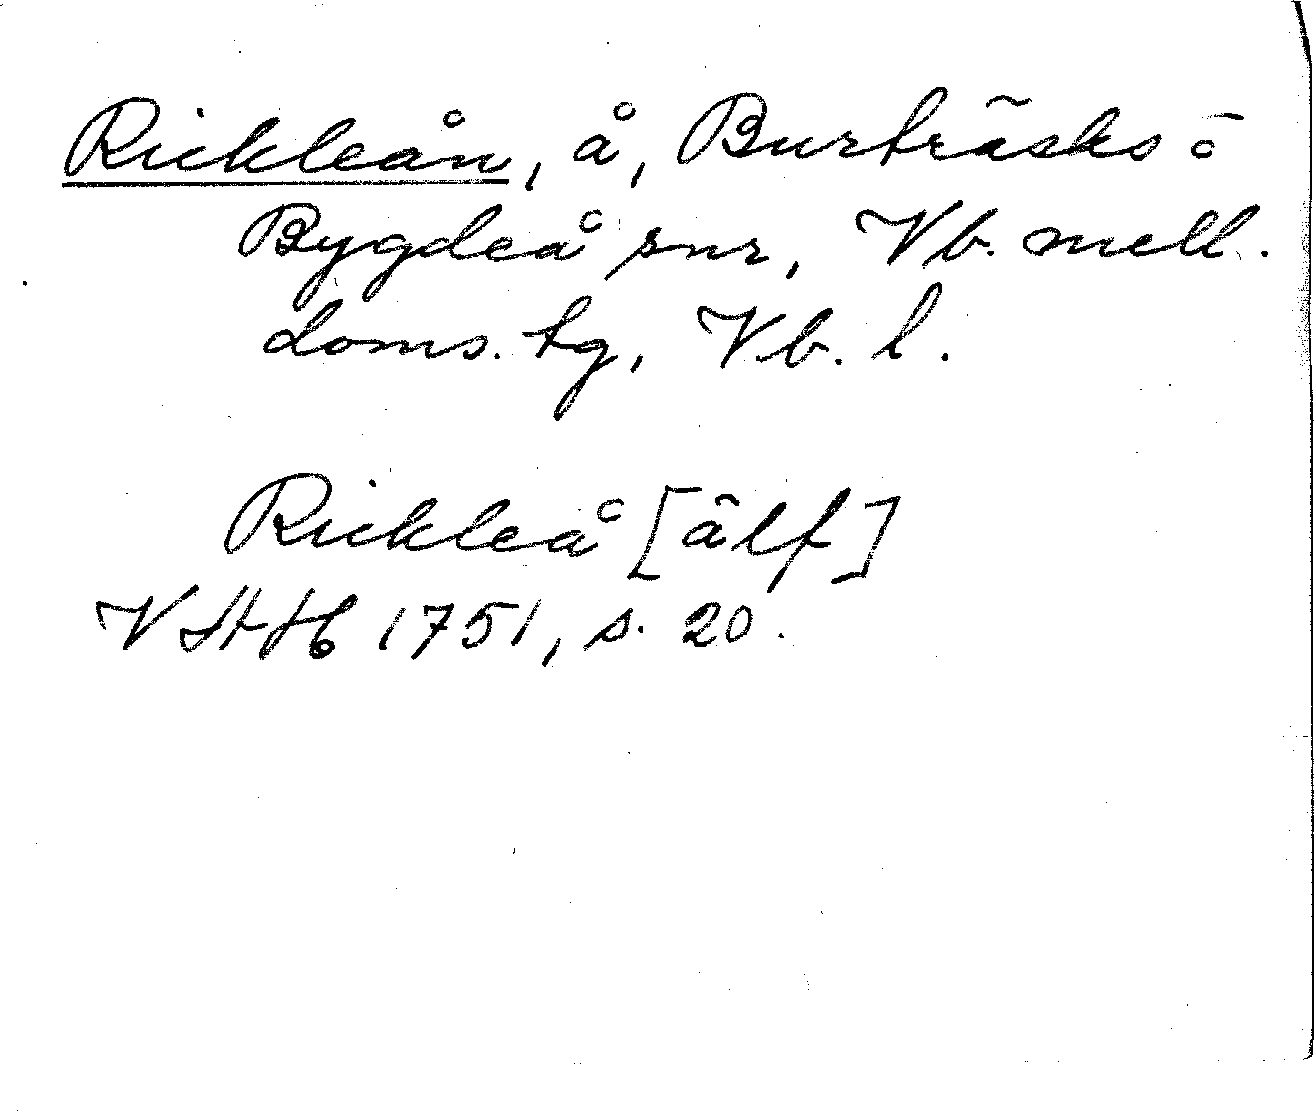 Rickleån, å, Burträsks o
Bygdeå snr, Vb. mell.
doms. tg, Vb. l.
Rickleå [älf]
VAH 1751, s. 20.